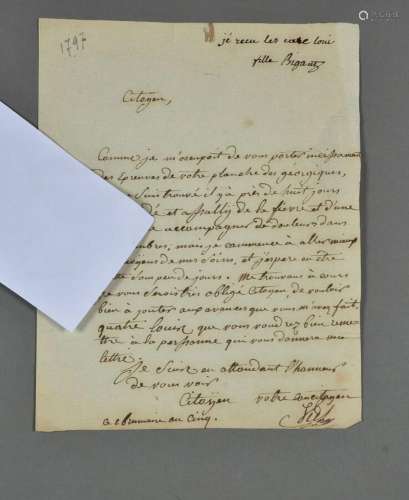 1797
je recu les catre loui
fille Bigant
Citoyen,
Comme je m'occupoit de vous porter incessament
des épreuves de votre planche des georgiques,
suis trouvé il y a près de huit jours
et assailly de la fièvre et d'une
accompagner de douleurs dans
mbres, mais je commence à aller mieux
moyens de mes soins, et j'espere en être
te d'ompeu de jours. Me trouvant à cours
je vous serois très obligé Citoyen, de vouloir
bien ajouter aux avances que vous m'avez fait,
quatre louist que vous voudrez bien remet
tre à la personne qui vous donnera ma
lettre.
Je suis en attendant l'honneur
de vous voir
Citoyen votre concitoyen
ce brumaire an cinq.